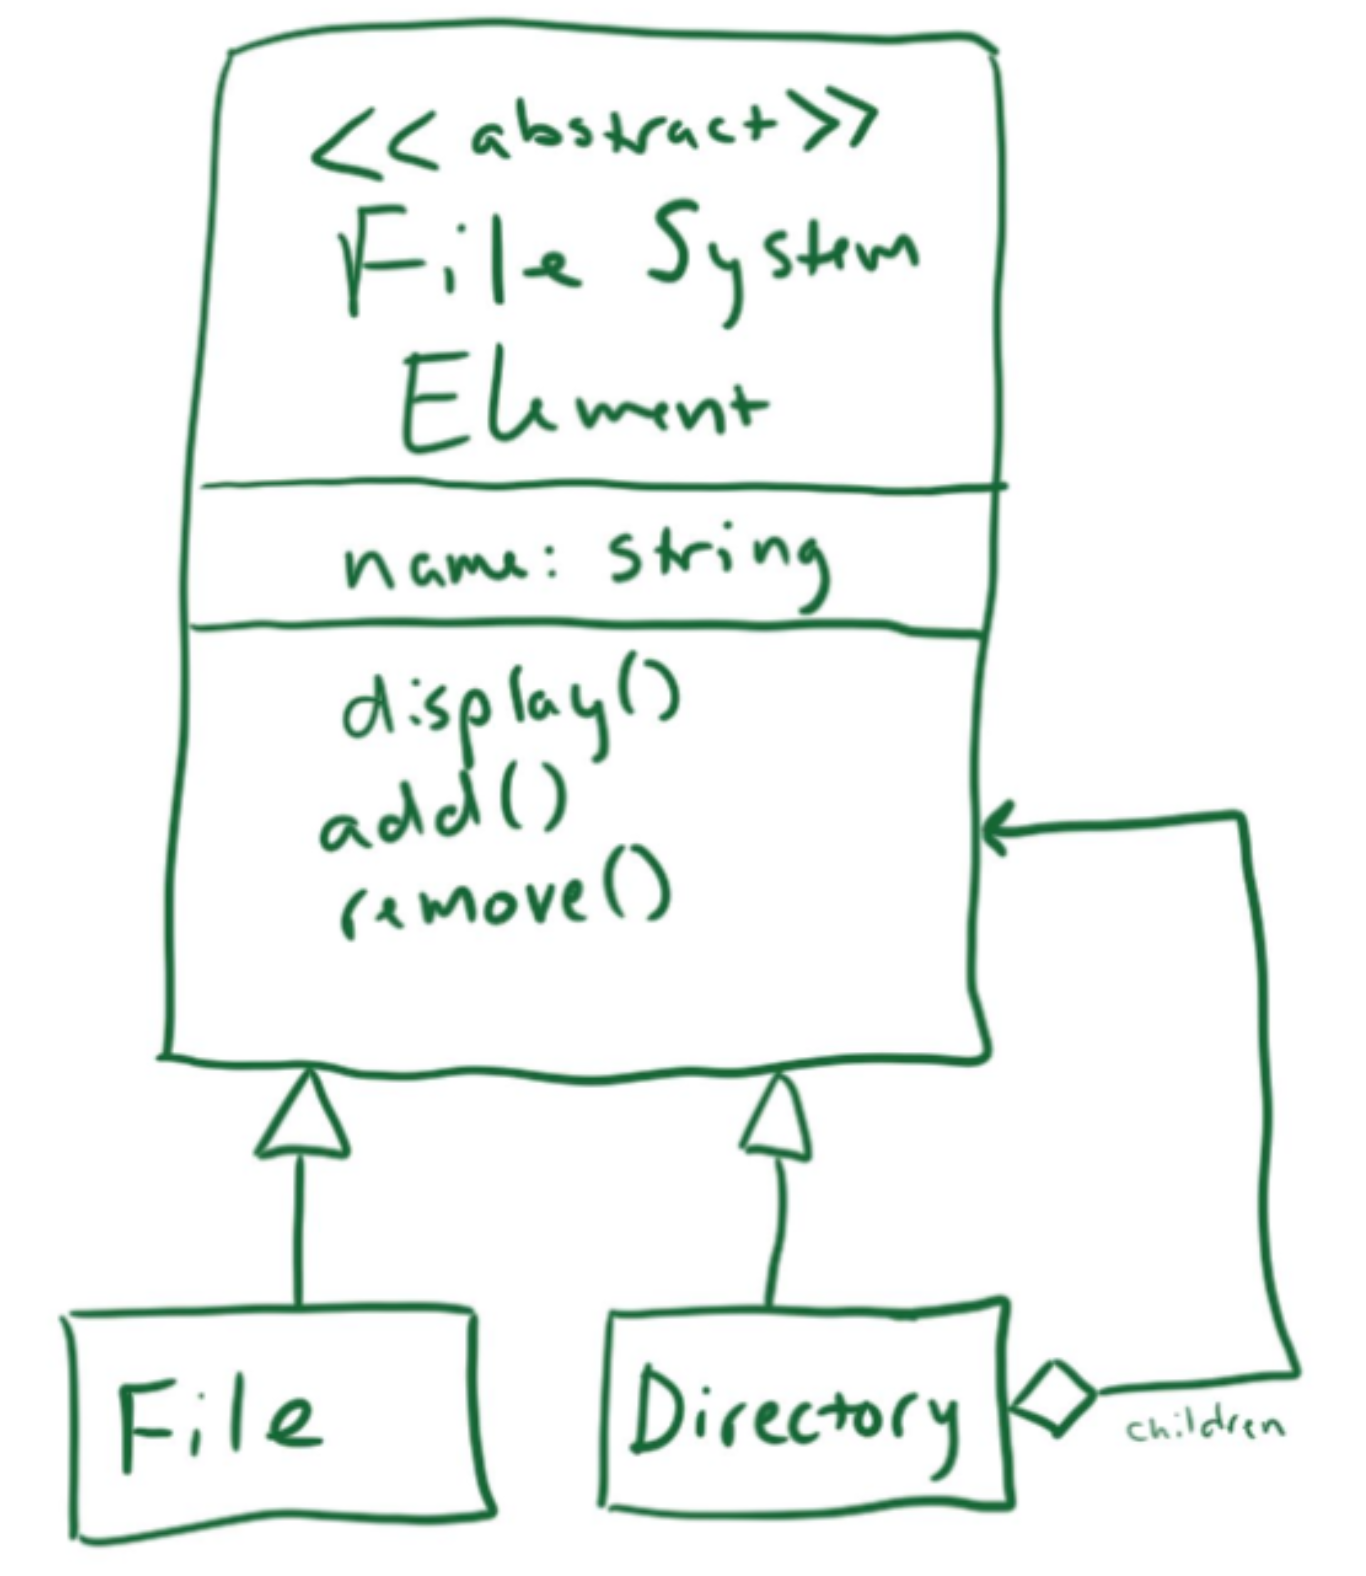 <<abstract>>
File System
Element
name: string
display()
add()
remove()
File
Directory
children